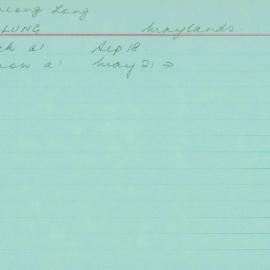 Leong Long
LUNG Maylands.
ck a! Sep 18.
now a! May 21 →